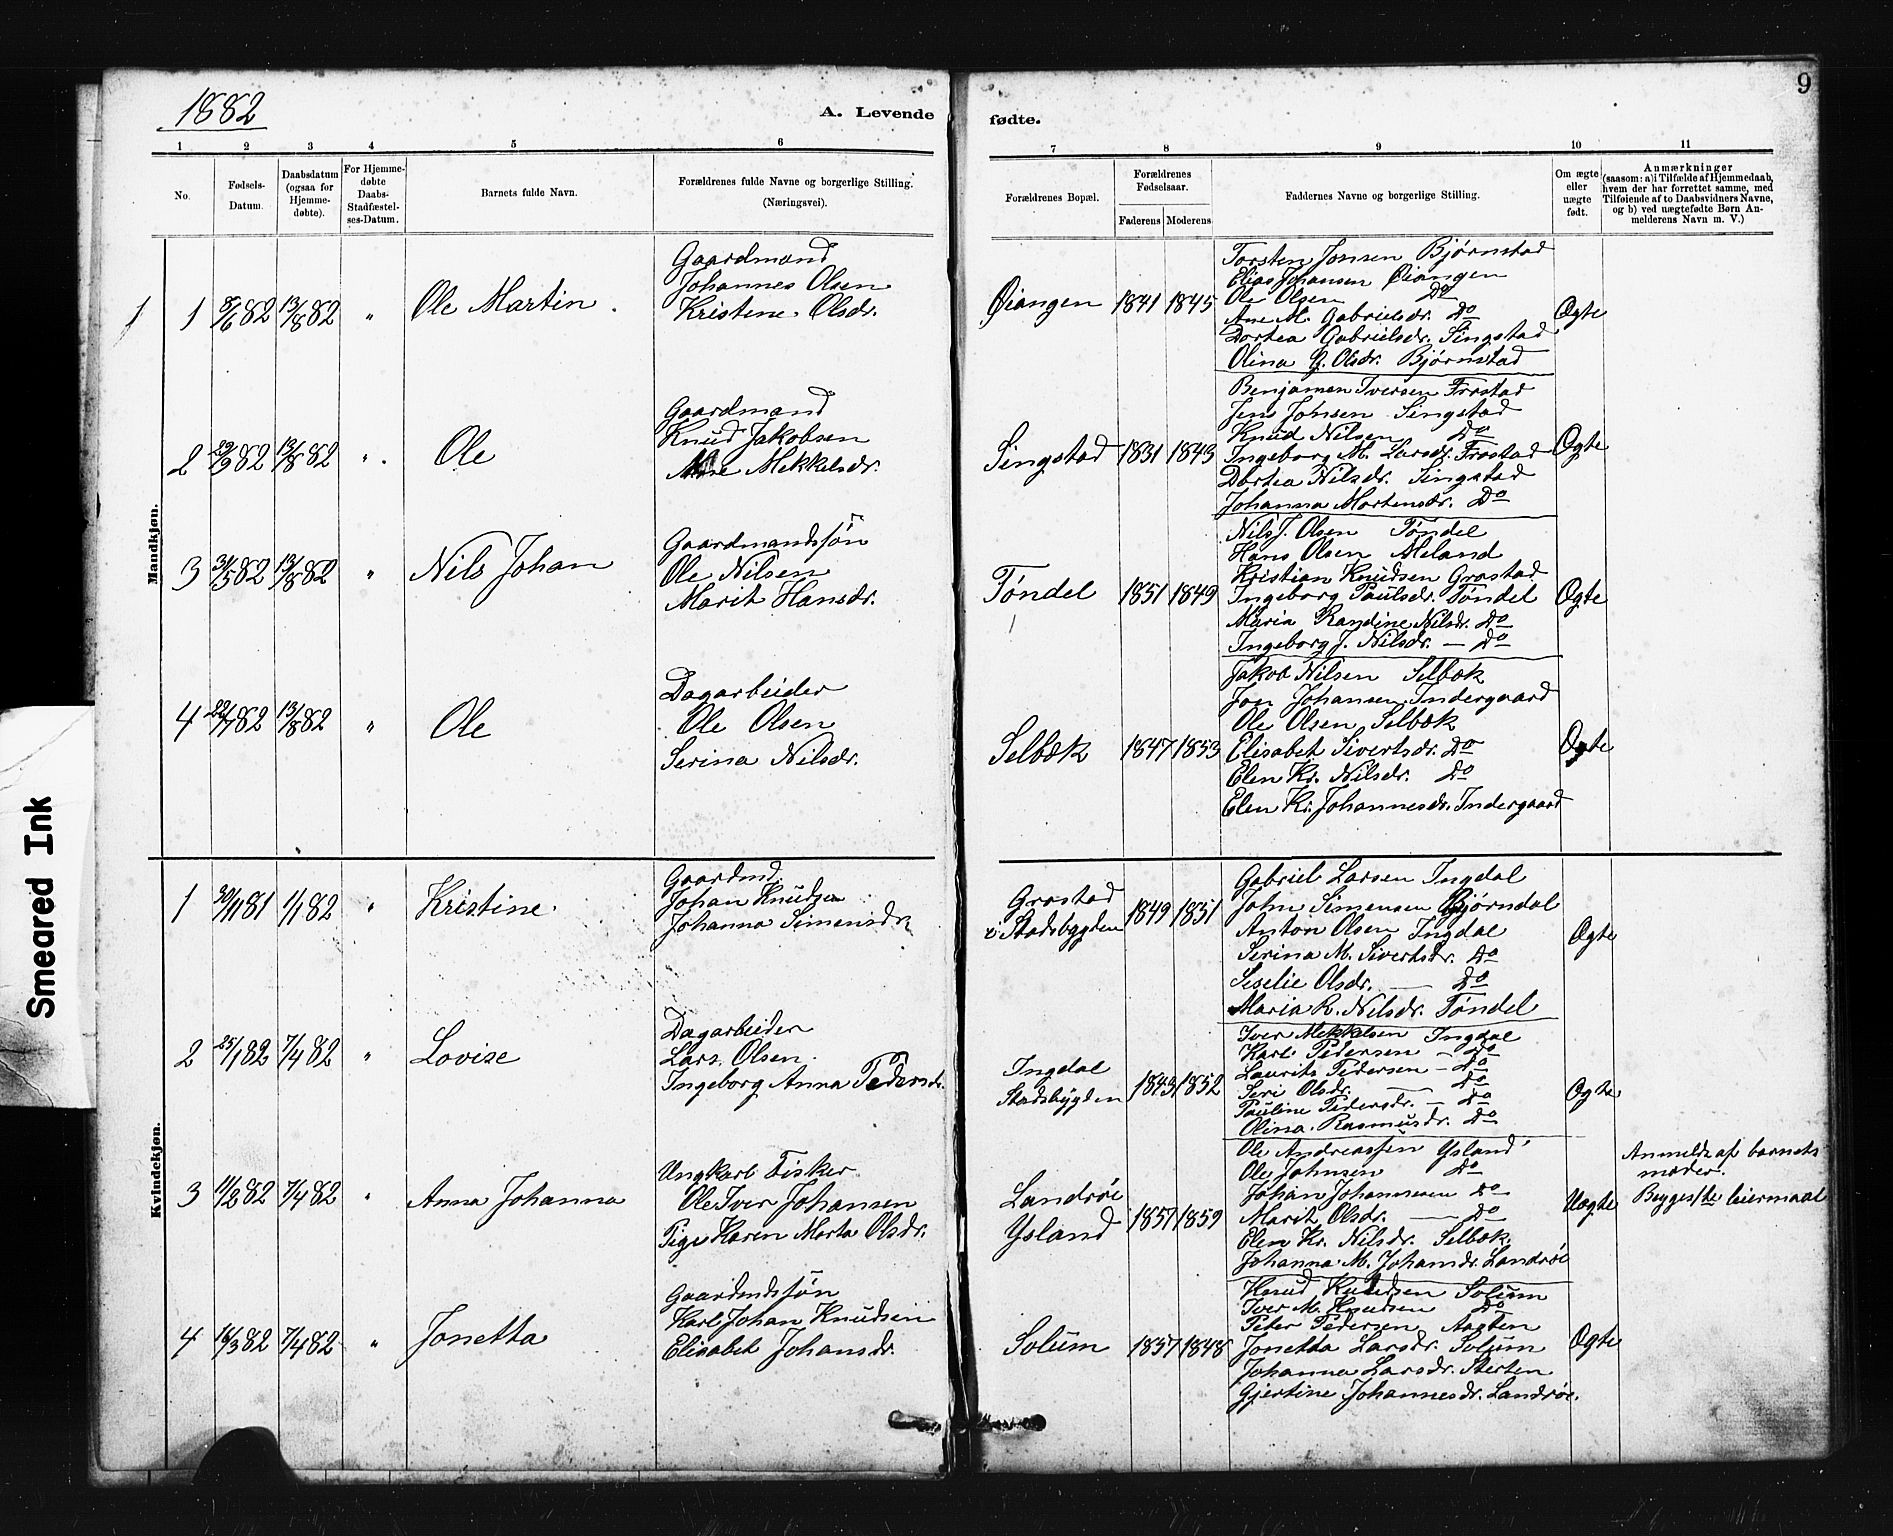 1882
A. Levende
fødte.
9
1 2 3 4 5 6 7 8 9 10 11
No.
Fødsels-
Datum.
Daabsdatum
(ogsaa for
Hjemme-
døbte).
For Hjemme-
døbte
Daabs-
Stadfæstel-
ses-Datum.
Barnets fulde Navn.
Forældrenes fulde Navne og borgerlige Stilling.
(Næringsvei).
Forældrenes Bopæl.
Forældrenes
Fødselsaar.
Faderens Moderens
Faddernes Navne og borgerlige Stilling.
Om ægte
eller
uægte
født.
Anmærkninger
(saasom: a)i Tilfælde af Hjemmedaab,
hvem der har forrettet samme, med
Tilføiende af to Daabsvidners Navne,
og b) ved uægtefødte Børn An-
melderens Navn m. V.)
Mandkjøn.
1 1 8/6 82 13/8 82 " Ole Martin
Gaardmand
Johannes Olsen
Kristene Olsdr.
Øiangen 1841 1845
Torsten Jonsen Bjørnstad
Elias Johansen Øiangen
Ole Olsen Do
Ane M. Gabrielsdr. Do
Dortea Gabrielsdr. Singstad
Olina G. Olsdr. Bjørnstad
Ægte
2 13/8 82 " Ole
Gaardmand
Knud Jakobsen
Mekkelsdr.
Singstad 1831 1843
Benjamen Iversen Frostad
Jens Johsen Singstad
Knud Nilsen Do
Ingeborg M. Larsdr. Frostad
Dortea Nilsdr. Singstad
Johanna Mortensdr. Do
Ægte
3 31/5 82 13/8 82 " Nils Johan
Gaardmandssøn
Ole Nilsen
Marit Hansdr.
Tøndel 1851 1849
Nils J. Olsen Tøndel
Hans Olsen Meland
Kristian Knudsen Grøstad
Ingeborg Paulsdr. Tøndel
Maria Randine Nilsdr. Do
Ingeborg J. Nilsdr. — Do
Ægte
4 22/7 82 13/8 82 " Ole
Dagarbeider
Ole Olsen
Serina Nilsdr.
Selbæk 1847 1853
Jakob Nilsen Selbæk
Jon Johansen Indergaard
Ole Olsen Selbæk
Elisabet Sivertsdr. Do
Elen Kr. Nilsdr. Do
Elen Kr. Johannesdr. Indergaard
Ægte
Kvindekjøn.
1 30/11 81 1/1 82 " Kristine
Gaardmd.
Johan Knudsen
Johanna Simensdr
Grøstad
i Stadsbygden 1849 1851
Gabriel Larsen Ingdal
John Simensen Bjørndal
Anton Olsen Ingdal
Serina M. Sivertsdr. Do
Seselie Olsdr. — Do
Maria R. Nilsdr. Tøndel
Ægte
2 25/1 82 7/4 82 " Lovise
Dagarbeider
Lars Olsen
Ingeborg Anna Pedersdr.
Ingdal
Stadsbygden 1843 1852
Iver Mekkelsen Ingdal
Karl Pedersen — Do
Laurits Pedersen — Do
Seri Olsdr. — Do
Pauline Pedersdr. — Do
Olina Rasmusdr. Do
Ægte
3 11/2 82 7/4 82 " Anna Johanna
Ungkarl Fisker
Ole Iver Johansen
Pige Karen Marta Olsdr.
Landrøe
Ysland 1857 1859
Ole Andreassen Ysland
Ole Johnsen Do
Johan Johannesen Do
Marit Olsdr. — Do
Elen Kr. Nilsdr. Selbæk
Johanna M. Johansdr. Landrøe
Uægte
Anmeldt af barnets
moder.
Begges 1ste leiermaal
4 16/3 82 7/4 82 " Jonetta
Gaardmdssøn
Karl Johan Knudsen
Elisabet Johansdr.
Solum 1857 1848
Knud Knudsen Solum
Iver M. Knudsen Do
Peter Pedersen Aasten
Jonetta Larsdr. Solum
Johanna Larsdr. Sterten
Gjertine Johannesdr. Landrøe.
Ægte
Smeared Ink